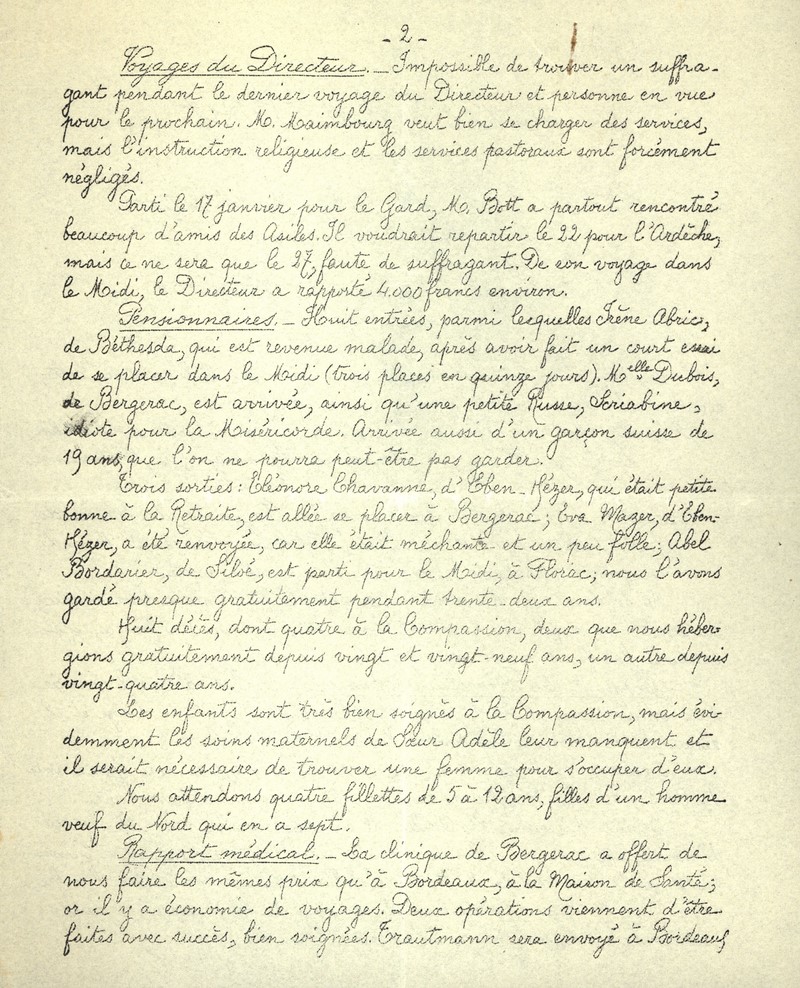 - 2 -
Voyages du Directeur. _ Impossible de trouver un suffra-
gant pendant le dernier voyage du Directeur et personne en vue
pour le prochain. M. Maimbourg veut bien se charger des services,
mais l'instruction religieuse et les services pastoraux sont forcément
négligés.
Parti le 17 janvier pour le Gard, M. Bott a partout rencontré
beaucoup d'amis des Asiles. Il voudrait repartir le 22 pour l'Ardèche,
mais ce ne sera que le 27, faute de suffragant. De son voyage dans
le Midi, le Directeur a rapporté 4.000 francs environ.
Pensionnaires. _ Huit entrées, parmi lesquelles Irène Abric,
de Béthesda, qui est revenue malade, après avoir fait un court essai
de se placer dans le Midi (trois places en quinze jours). Melle Dubois,
de Bergerac, est arrivée, ainsi qu'une petite Russe, Scriabine,
idiote pour la Miséricorde. Arrivée aussi d'un garçon suisse de
19 ans, que l'on ne pourra peut-être pas garder.
Trois sorties: Eléonore Chavanne, d'Eben-Hézer, qui était petite
bonne à la Retraite, est allée se placer à Bergerac; Eva Mazer, d'Eben-
Hézer, a été renvoyée, car elle était méchante et un peu folle; Abel
Bordarier, de Siloé, est parti pour le Midi, à Florac; nous l'avons
gardé presque gratuitement pendant trente-deux ans.
Huit décès, dont quatre à la Compassion, deux que nous héber-
gions gratuitement depuis vingt et vingt-neuf ans, un autre depuis
vingt-quatre ans.
Les enfants sont très bien soignés à la Compassion, mais évi-
demment les soins maternels de Sœur Adèle leur manquent et
il serait nécessaire de trouver une femme pour s'occuper d'eux.
Nous attendons quatre fillettes de 5 à 12 ans, filles d'un homme
veuf du Nord qui en a sept.
Rapport médical. _ La clinique de Bergerac a offert de
nous faire les mêmes prix qu'à Bordeaux, à la Maison de Santé;
or il y a économie de voyages. Deux opérations viennent d'être
faites avec succès, bien soignées. Trautmann sera envoyé à Bordeaux,